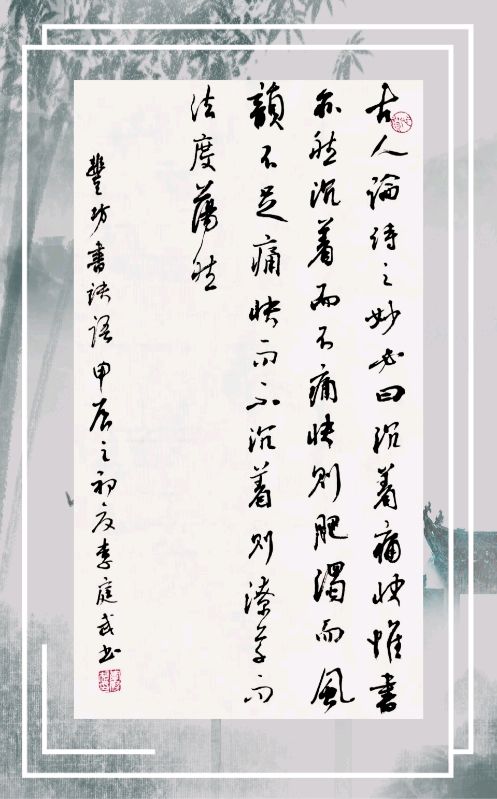 古人論詩之妙必曰沉着痛快惟書
亦然沉着而不痛快則肥濁而風
韻不足痛快而不沉着則潦草而
法度蕩然
豐坊書訣語甲辰之初夏李庭武书